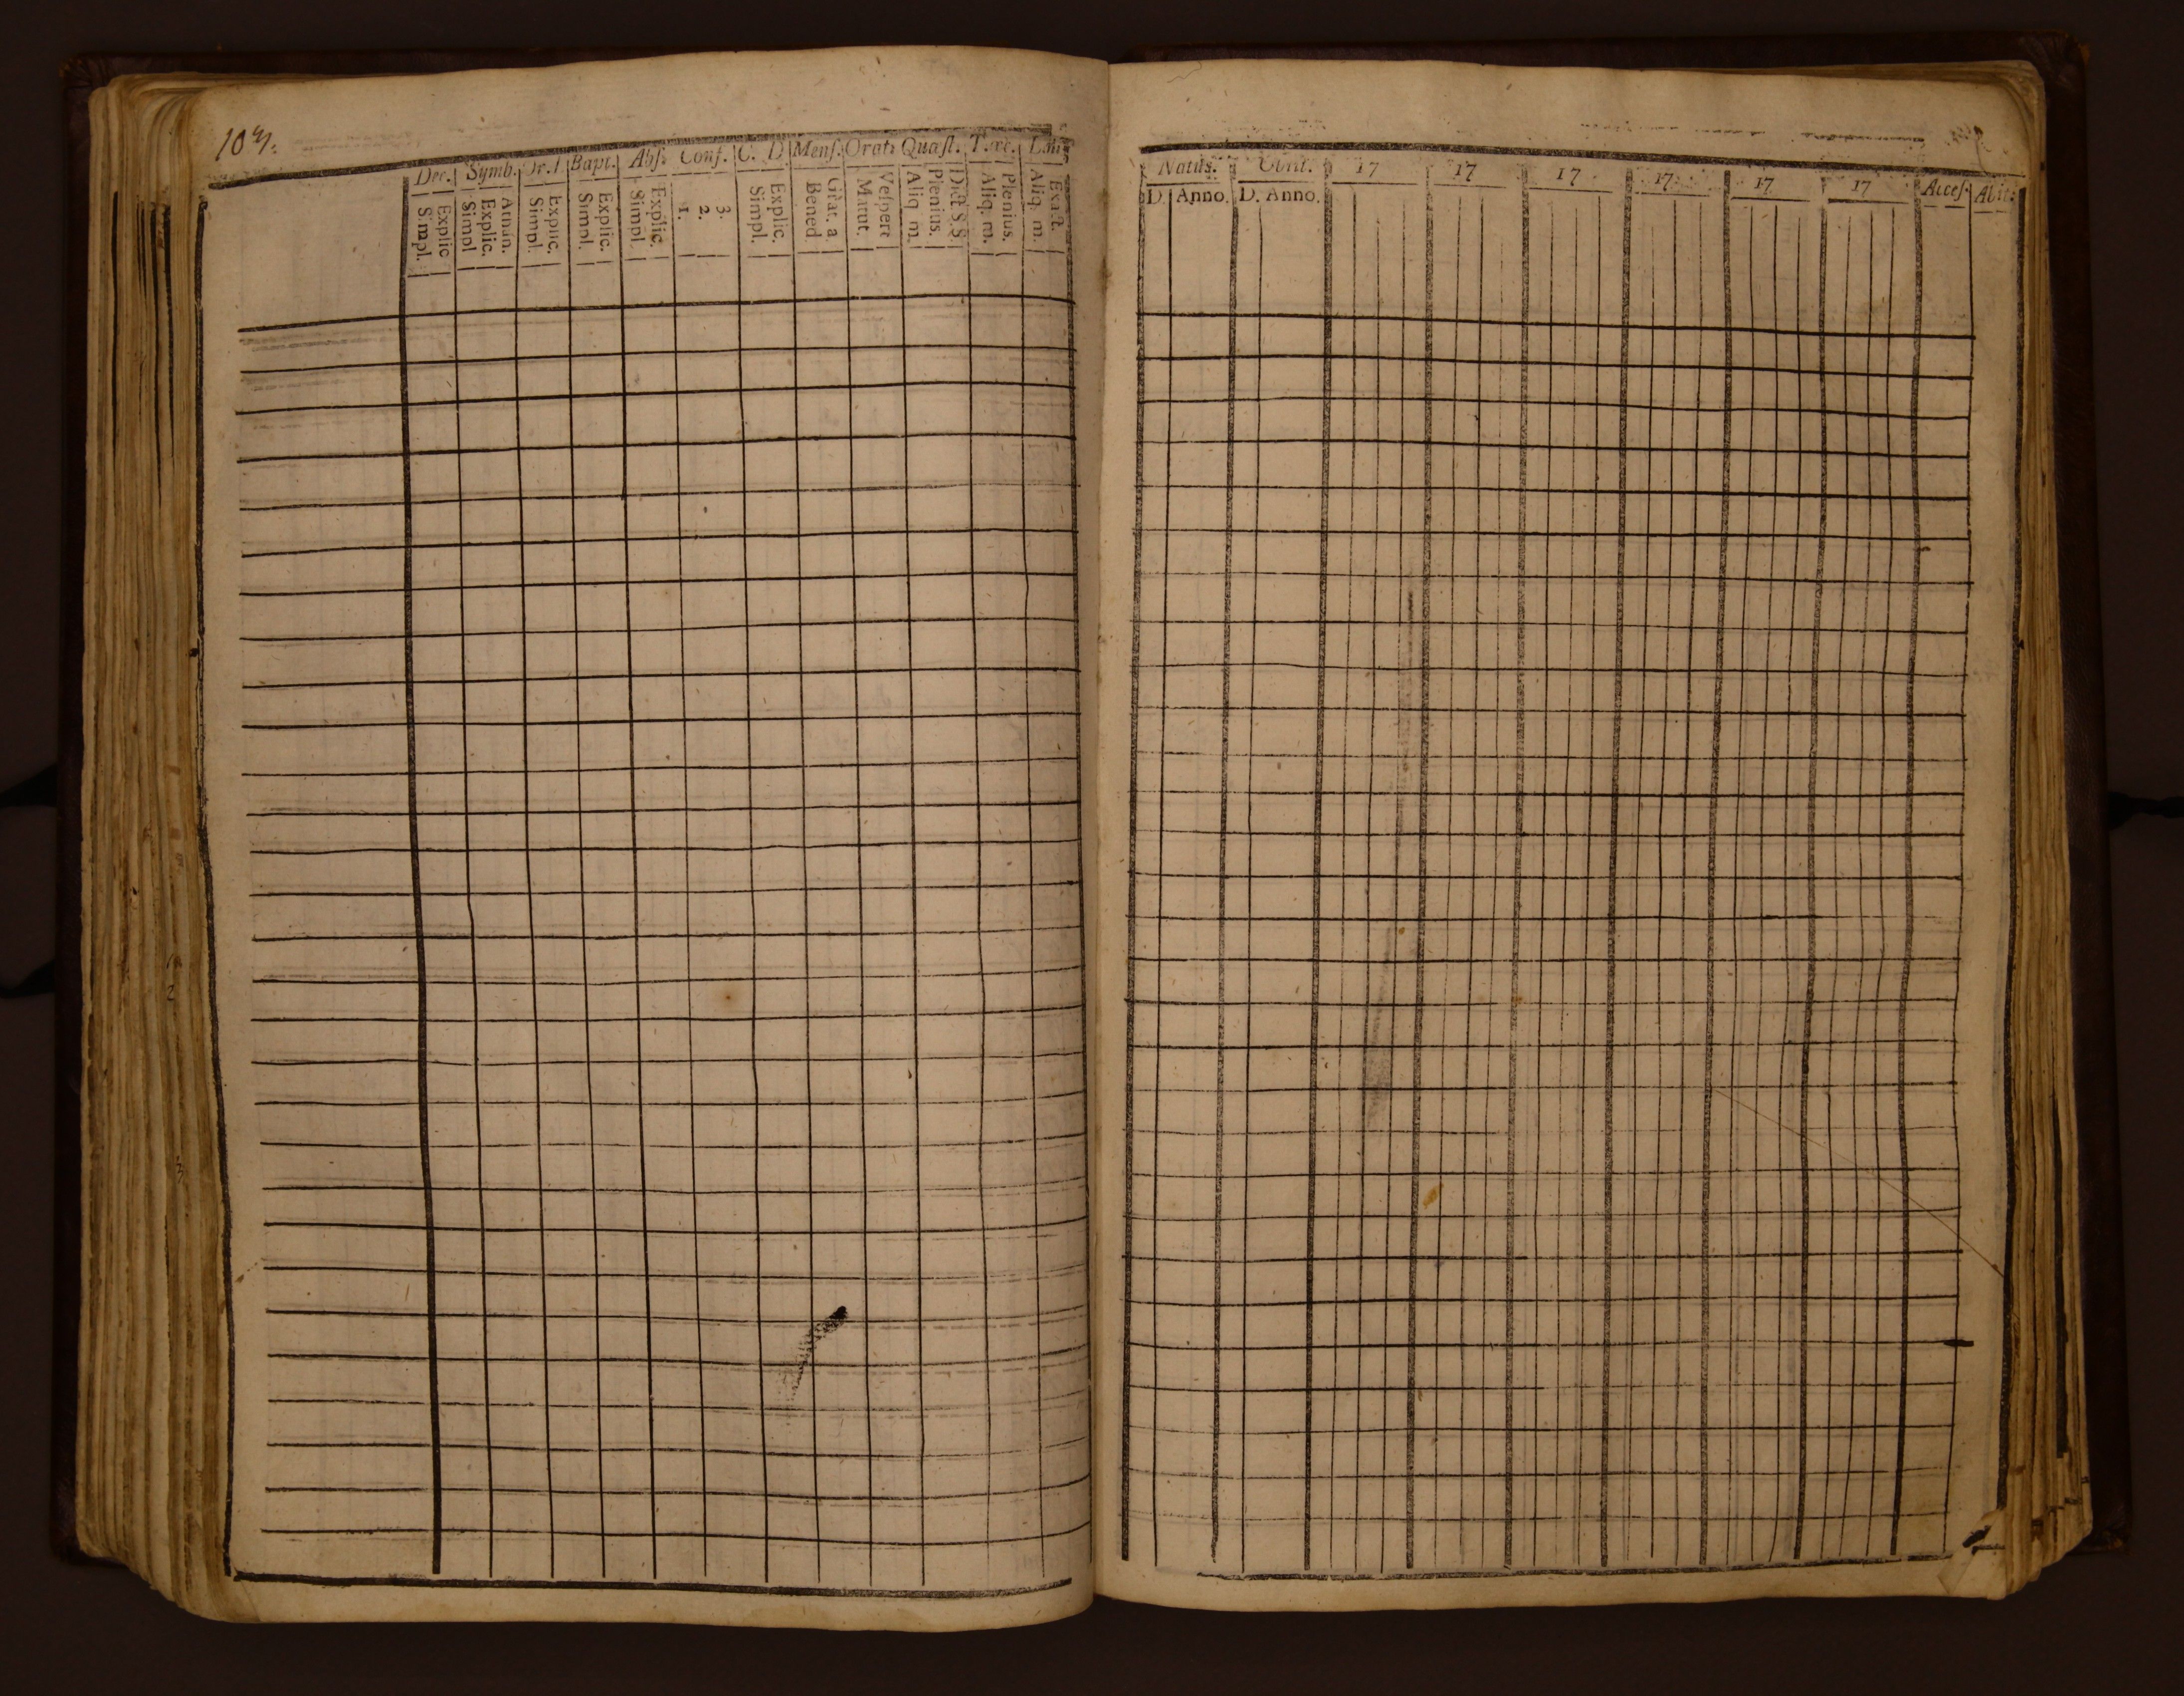 Dec. Symb. Or. Bapt. Abs. Conf. C. D Mens. Orat: Quæst.
Simpl. Explic
Simpl Explic. Athan.
Simpl. Explic.
Simpl. Explic.
Simpl. Explic.
1. 2. 3.
Simpl. Explic.
Bened. Grat. a
Matut. Vespere
Aliq m. Plenius. Dict S S
Aliq. m. Plenius.
Aliq. m. Exact.
Natus. 17 17 17 17 17 17 Acces. Abit.
D. Anno. D. Anno.